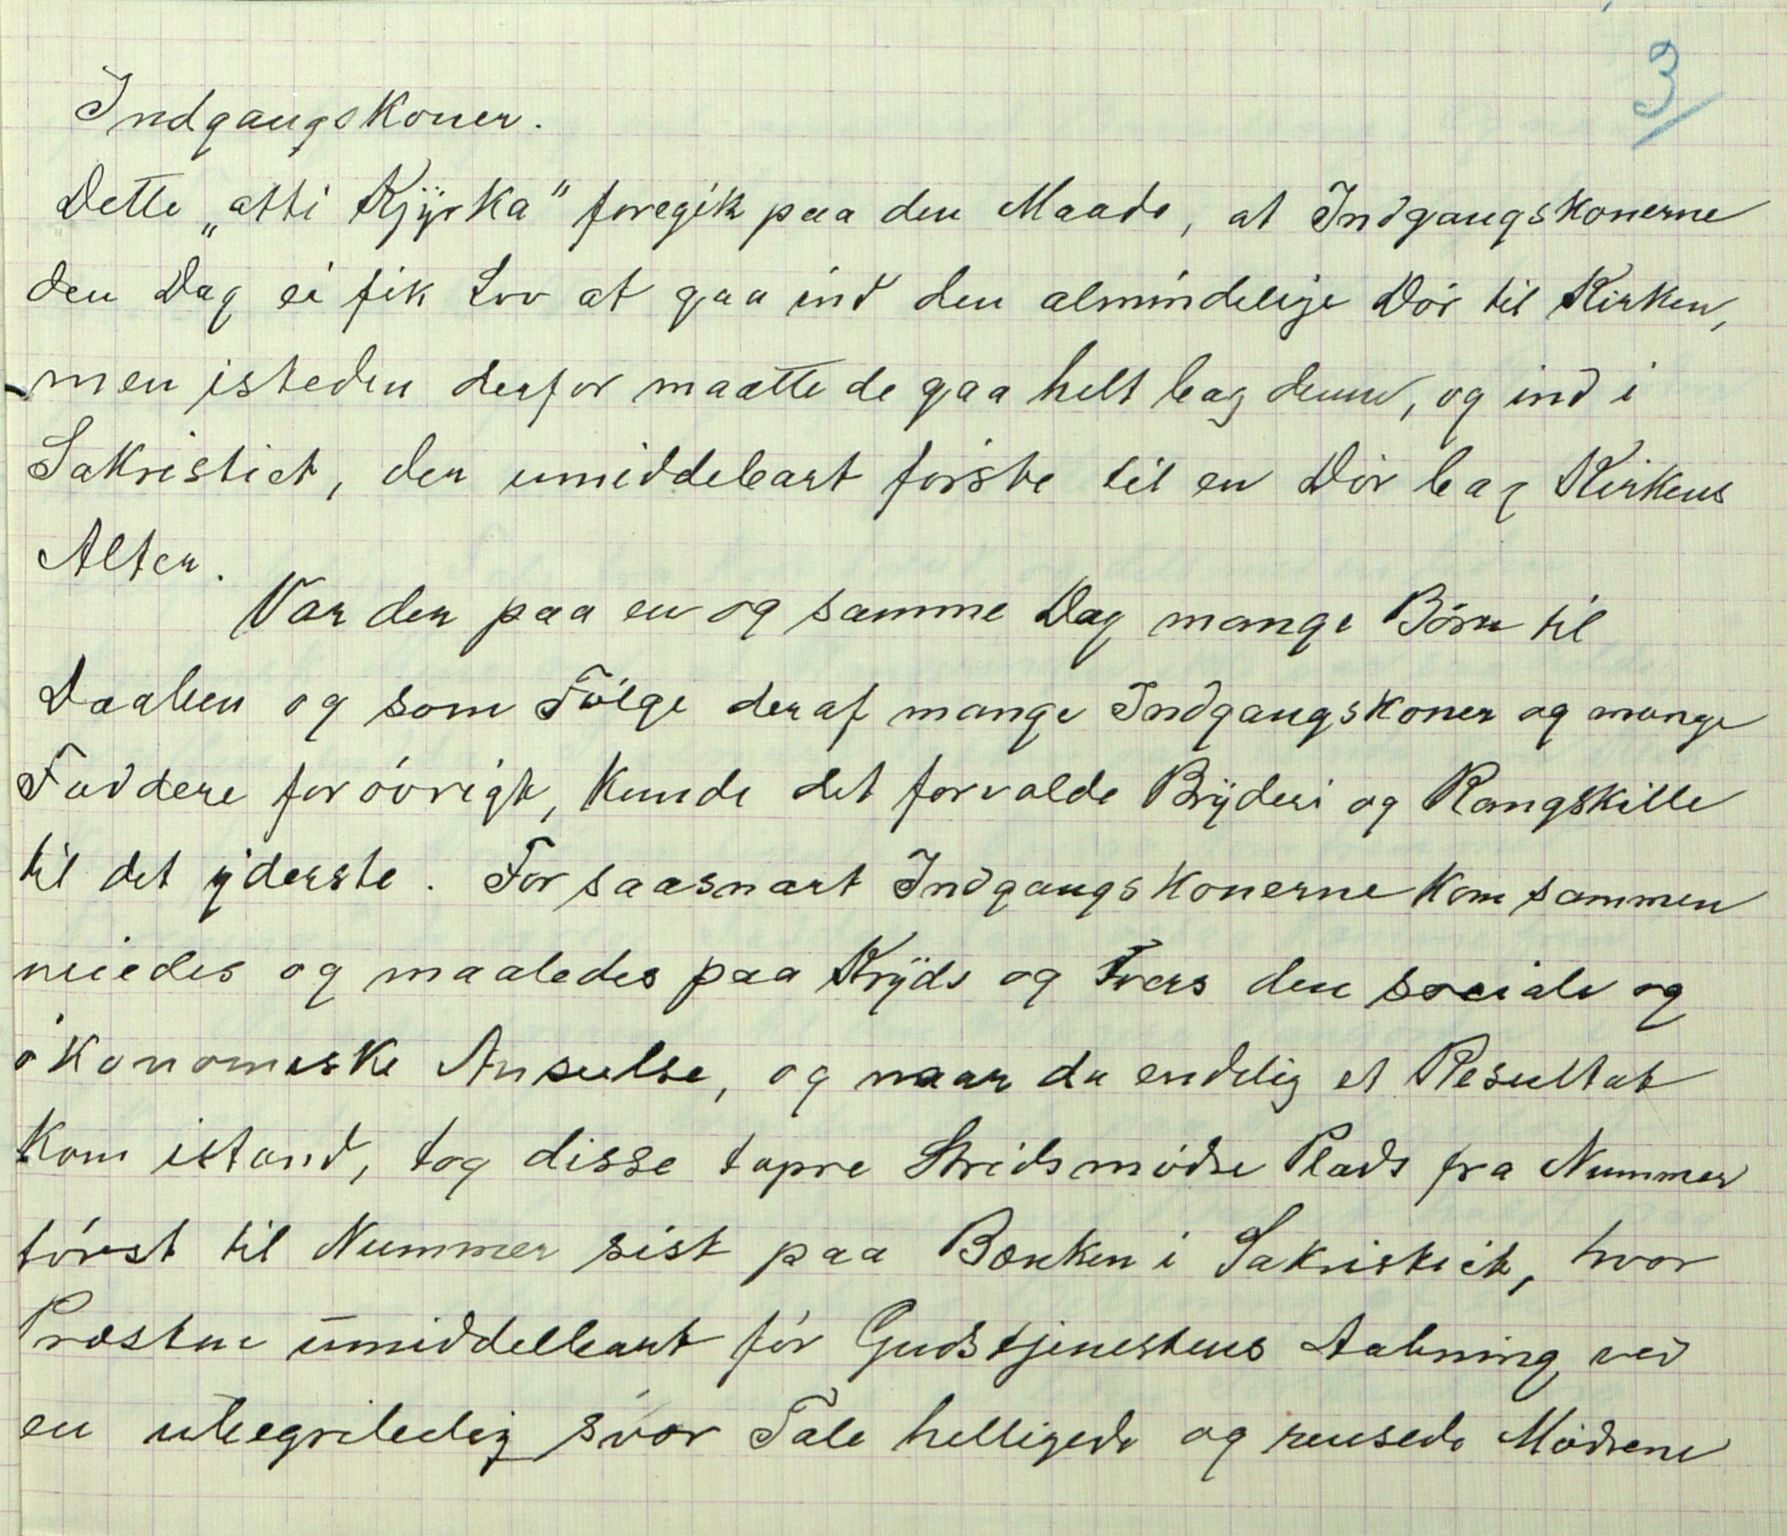 3
Indgangskoner.
Dette „atti Kjÿrka" foregik paa den Maade, at Indgangskonerne
den Dag ei fik Lov at gaa ind den almindelige Dór til Kirken,
men isteden derfor maatte de gaa helt bag denne, og ind i
Sakristiet, der umiddelbart fórste til en Dór bag Kirkens
Alter.
Var der paa en og samme Dag mange Bórn til
Daaben og som Fólge deraf mange Indgangskoner og mange
Faddere for óvrigt, kunde det forvolde Brÿderi og Rangskille
til det ÿderste. For saasnart Indgangskonerne kom sammen
veiedes og maaledes paa Krÿds og Tvers den sociale og
ókonomiske Anseelse, og naar da endelig et Resultat
kom istand, tog disse tapre Stridsmódre Plads fra Nummer
fórst til Nummer sist paa Bænken i Sakristiet, hvor
Præsten umiddelbart fór Gudstjenestens Aabning ved
en ubegribelig svær Tale helligede og rensede Módrene